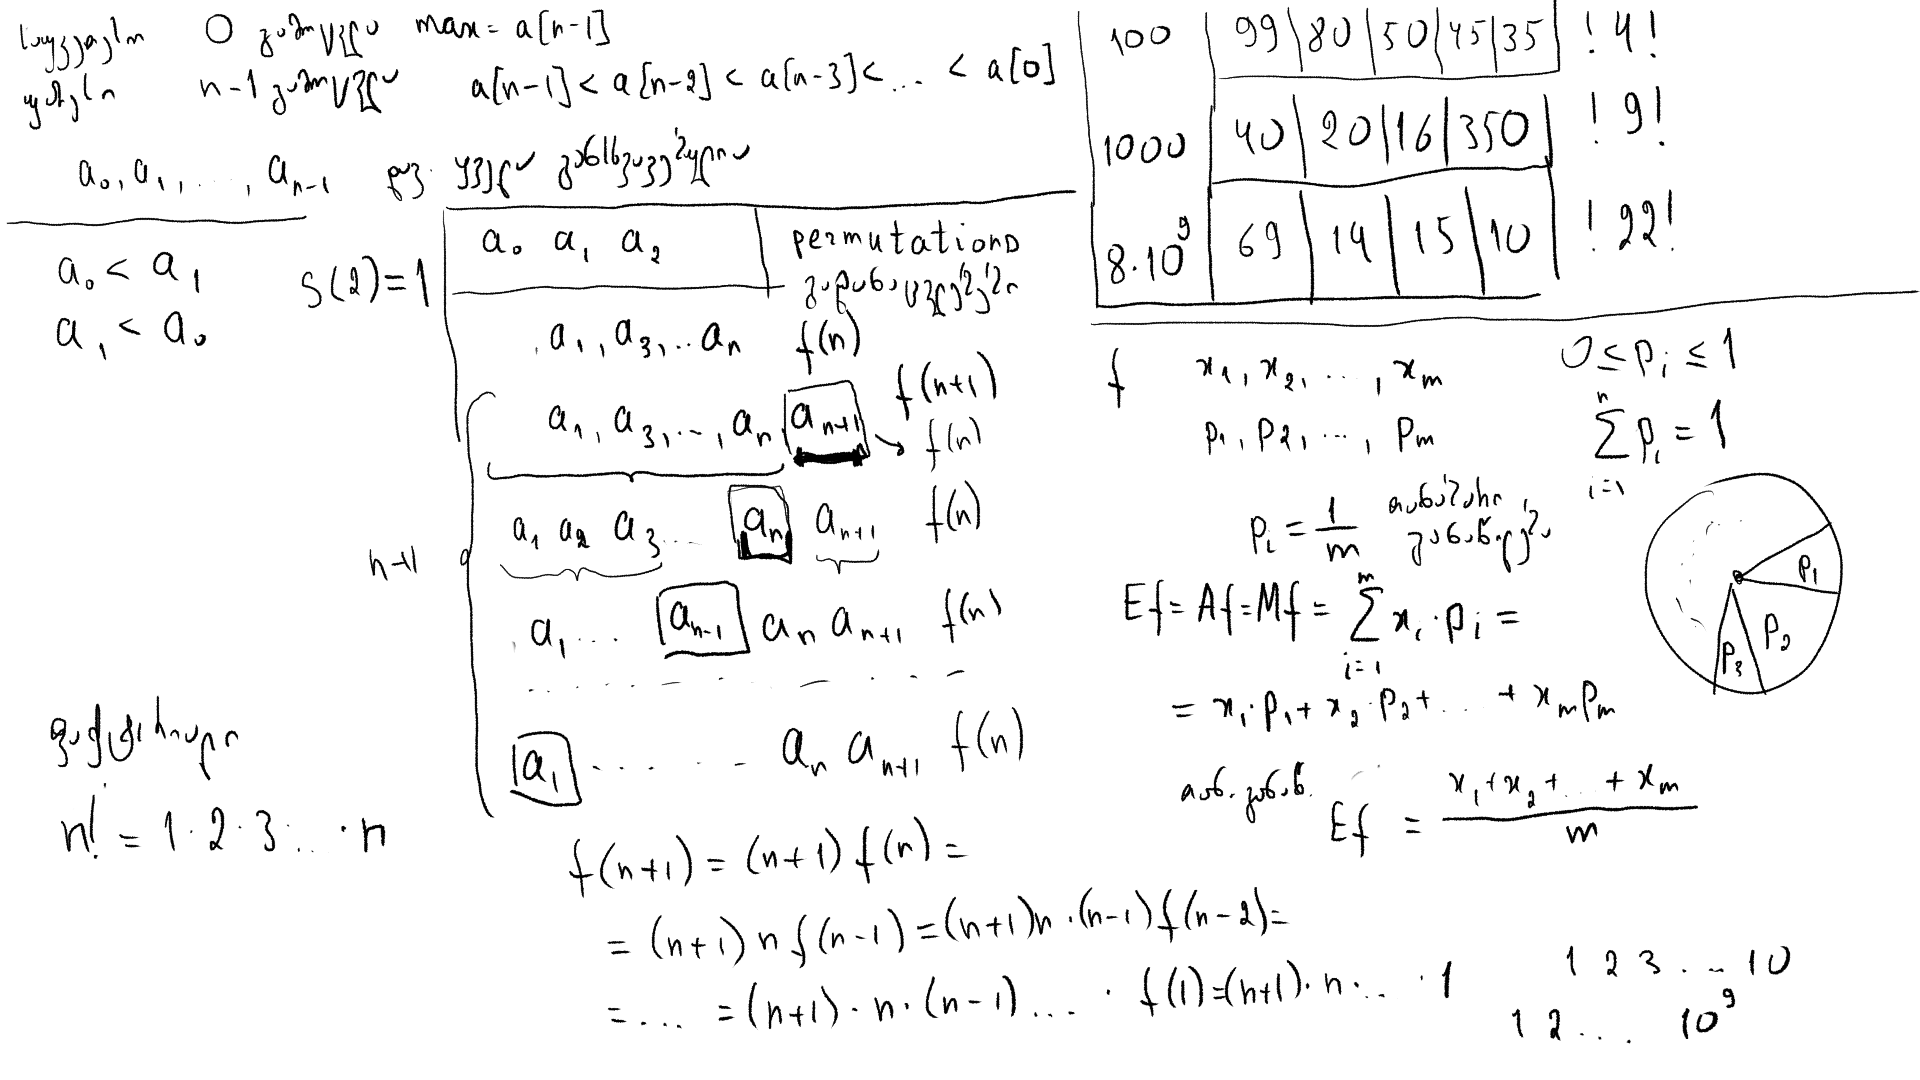 საუკეთესო 0 გამოცვლა max = a[n-1]
უარესი n-1 გამოცვლა a[n-1] < a[n-2] < a[n-3] < ... < a[0]
a₀, a₁, ..., aₙ₋₁ ყველა განსხვავებულია
a₀ < a₁
a₁ < a₀
S(2)=1
a₀ a₁ a₂
permutations
გადანაცვლებები
a₁, a₃, .. aₙ f(n)
a₁, a₃, .., aₙ, aₙ₊₁ f(n+1)
f(n)
a₁ a₂ a₃ ... aₙ aₙ₊₁ f(n)
n+1
a₁ ... aₙ₋₁ aₙ aₙ₊₁ f(n)
a₁ ...... aₙ aₙ₊₁ f(n)
ფაქტორიალი
n! = 1·2·3·...·n
f(n+1) = (n+1) f(n) =
= (n+1) n f(n-1) = (n+1)n·(n-1) f(n-2) =
= ... = (n+1)·n·(n-1)...· f(1) = (n+1)·n·...·1
100 99 80 50 45 35 !4!
1000 40 20 16 350 !9!
8·10⁹ 69 14 15 10 !22!
f x₁, x₂, ..., xₘ 0 ≤ pᵢ ≤ 1
p₁, p₂, ..., pₘ ∑ⁿᵢ₌₁ pᵢ = 1
pᵢ = 1/m თანაბარი
p₁
p₂
p₃
Ef = Af = Mf = ∑ᵐᵢ₌₁ xᵢ·pᵢ =
= x₁·p₁ + x₂·p₂ + ... + xₘpₘ
თან. განაწ. Ef = (x₁+x₂+...+xₘ)/m
1 2 3 ... 10
1 2 ... 10⁹